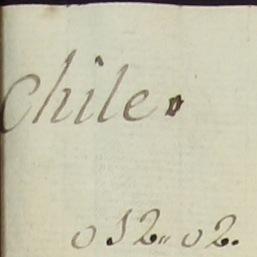 Chile.
012,,02.